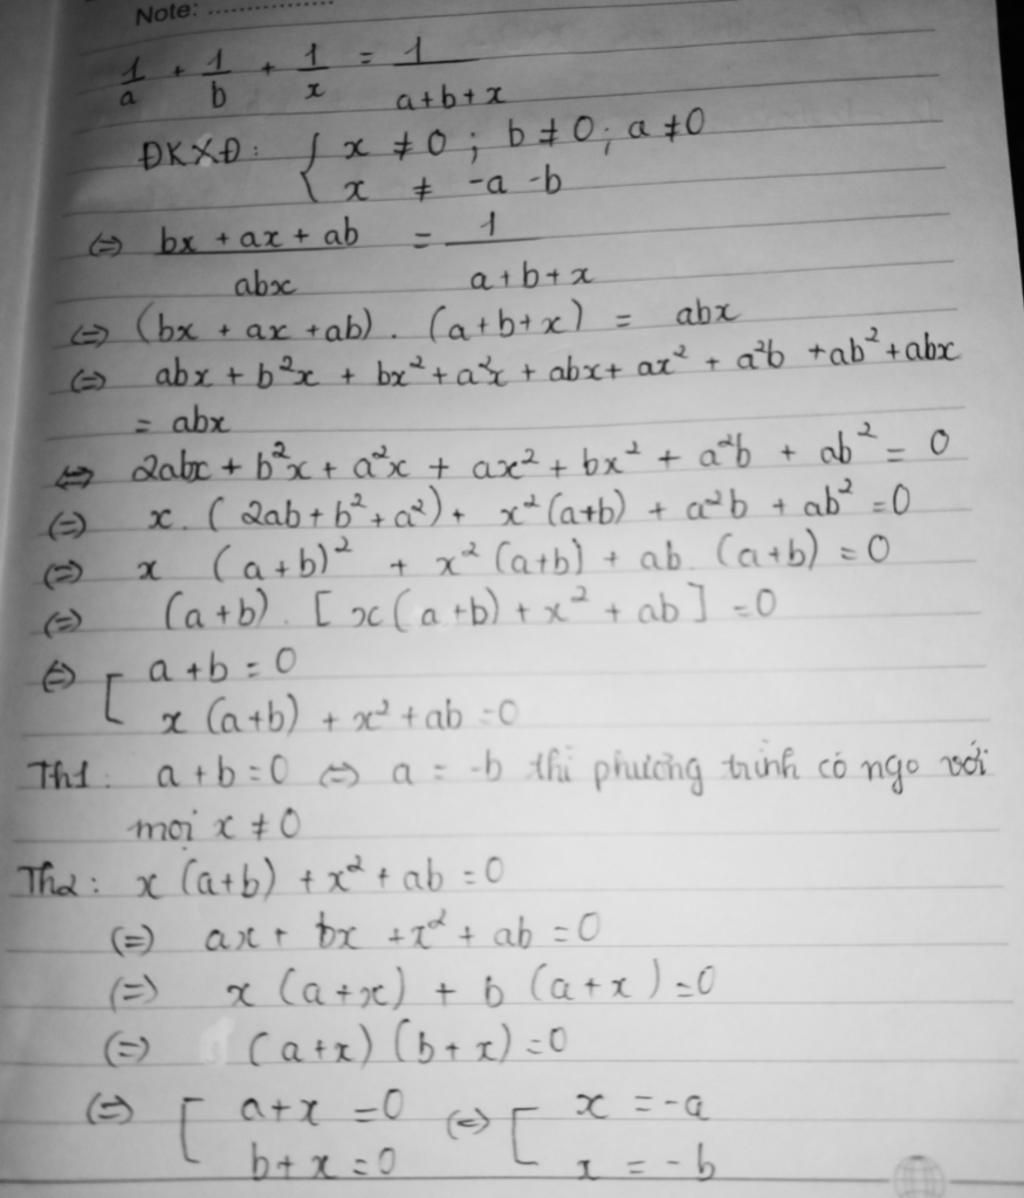 Note: ..................
1/a + 1/b + 1/x = 1/(a+b+x)
ĐKXĐ: { x ≠ 0 ; b ≠ 0 ; a ≠ 0
x ≠ -a -b
⇔ (bx + ax + ab)/abx = 1/(a+b+x)
⇔ (bx + ax + ab) . (a+b+x) = abx
⇔ abx + b²x + bx² + a²x + abx + ax² + a²b + ab² + abx
= abx
⇔ 2abx + b²x + a²x + ax² + bx² + a²b + ab² = 0
⇔ x . (2ab + b² + a²) + x² (a+b) + a²b + ab² = 0
⇔ x (a+b)² + x² (a+b) + ab . (a+b) = 0
⇔ (a+b) . [ x(a+b) + x² + ab ] = 0
⇔ [ a + b = 0
x (a+b) + x² + ab = 0
Th1: a + b = 0 ⇔ a = -b thì phương trình có ngo với
mọi x ≠ 0
Th2: x (a+b) + x² + ab = 0
⇔ ax + bx + x² + ab = 0
⇔ x (a+x) + b (a+x) = 0
⇔ (a+x) (b+x) = 0
⇔ [ a+x = 0 ⇔ [ x = -a
b+x = 0 x = -b